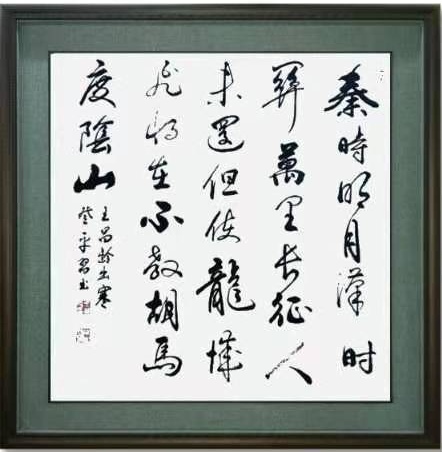 秦時明月漢時
關萬里長征人
未還但使龍城
飛將在不教胡馬
度陰山
王昌齡出塞